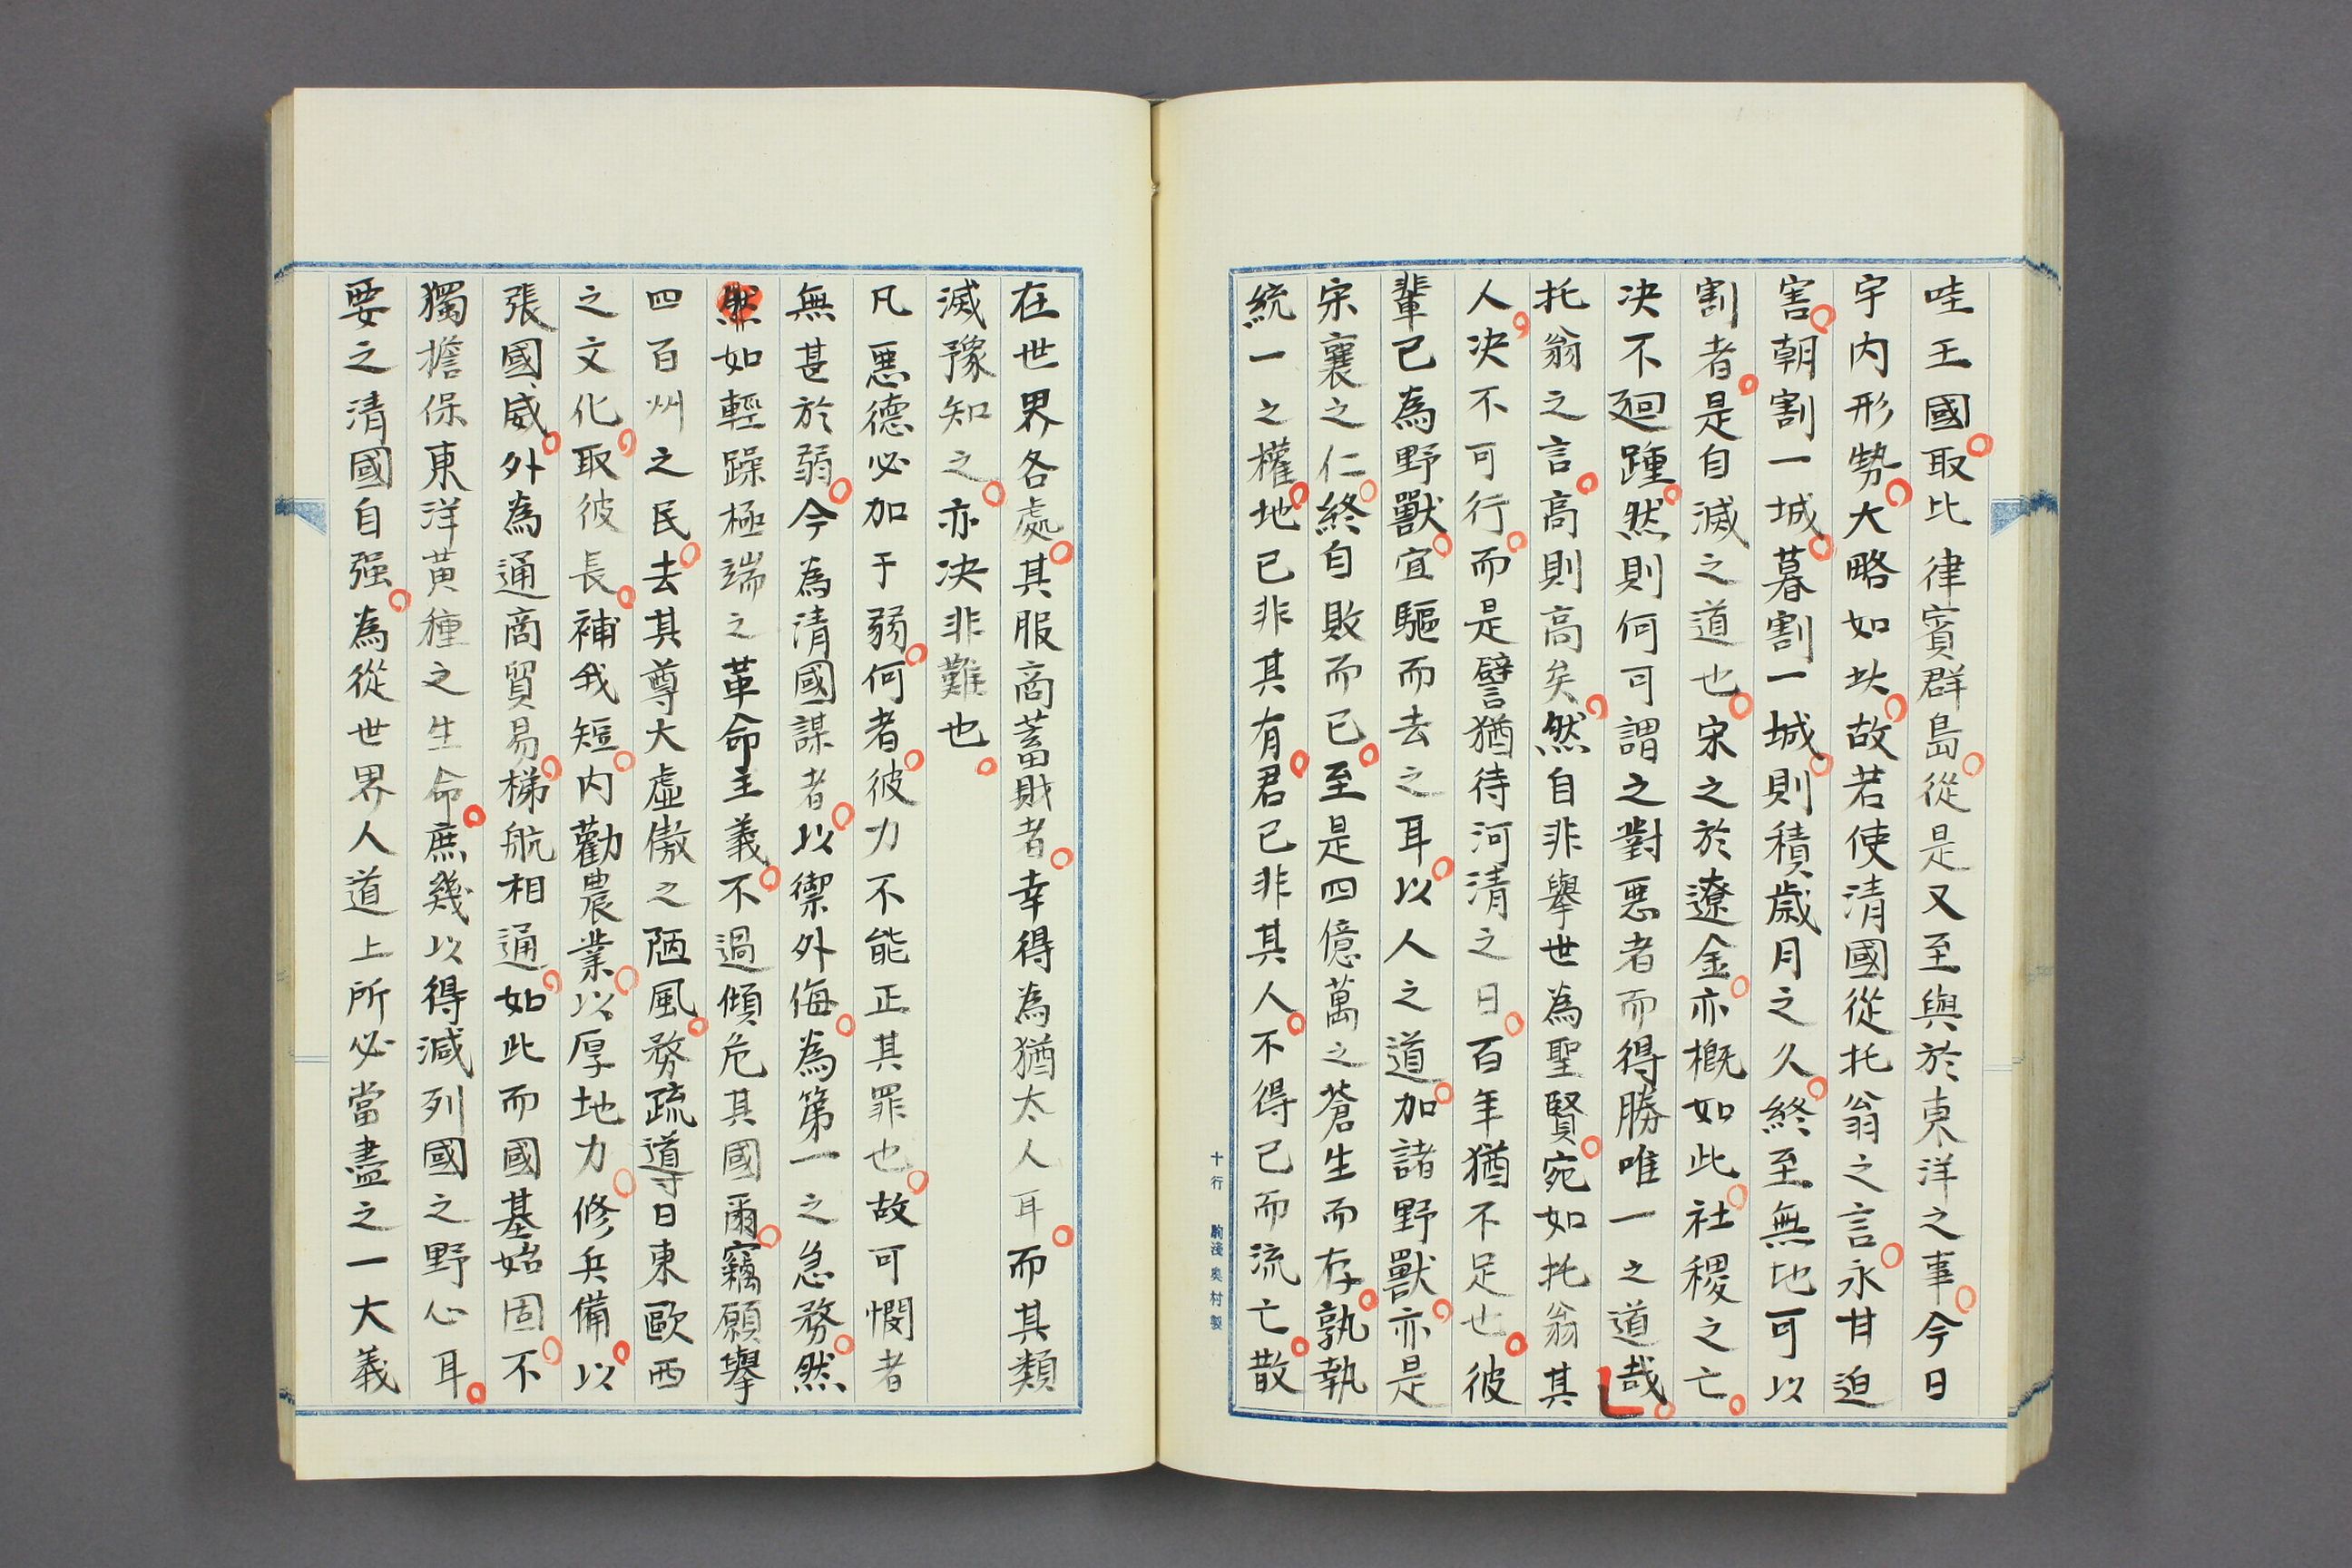 哇王國取比律賓群島從是又至與於東洋之事今日
宇内形勢大略如此故若使清國從托翁之言永甘迫
害朝割一城暮割一城則積歲月之久終至無地可以
割者是自滅之道也宋之於遼金亦概如此社稷之亡
决不廻踵然則何可謂之對惡者而得勝唯一之道哉
托翁之言高則高矣然自非舉世為聖賢宛如托翁其
人决不可行而是譬猶待河清之日百年猶不足也彼
輩已為野獸宜驅而去之耳以人之道加諸野獸亦是
宋襄之仁終自敗而已至是四億萬之蒼生而存孰執
統一之權地已非其有君已非其人不得已而流亡散
十行 駒淺奥村製
在世界各處其服商蓄財者幸得為猶太人耳而其類
滅豫知之亦决非難也
凡惡德必加于弱何者彼力不能正其罪也故可憫者
無甚於弱今為清國謀者以禦外侮為第一之急務然
然如輕躁極端之革命主義不過傾危其國爾竊願舉
四百州之民去其尊大虛傲之陋風務疏導日東歐西
之文化取彼長補我短内勸農業以厚地力修兵備以
張國威外為通商貿易梯航相通如此而國基始固不
獨擔保東洋黄種之生命庶幾以得減列國之野心耳
要之清國自强為從世界人道上所必當盡之一大義